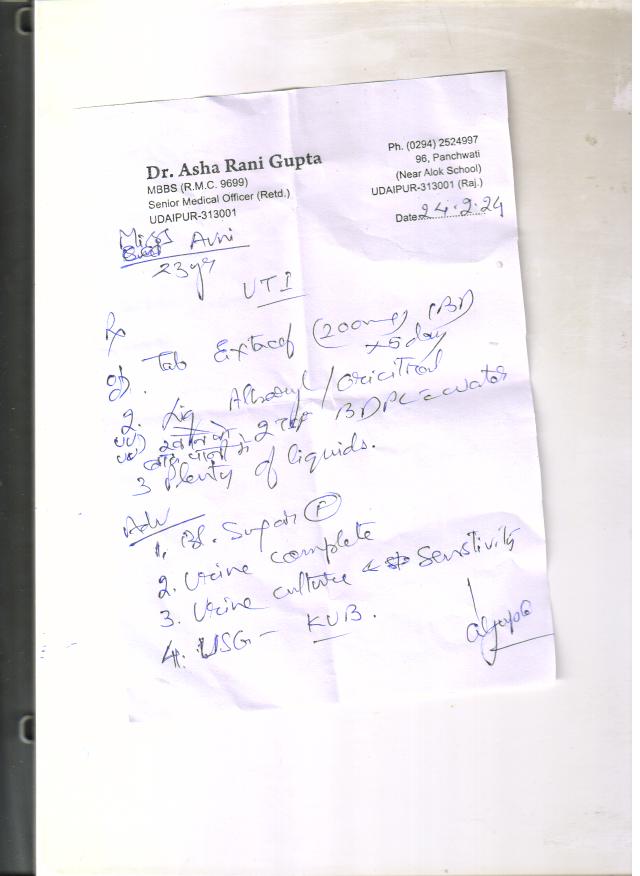 Dr. Asha Rani Gupta
MBBS (R.M.C. 9699)
Senior Medical Officer (Retd.)
UDAIPUR-313001
Ph. (0294) 2524997
96, Panchwati
(Near Alok School)
UDAIPUR-313001 (Raj.)
Date 24.2.24
Miss Avni
23 yr
UTI
Rx
Tab (200mg) (BD)
x 5 day
2. Liq /
खाने के 2 BDPC c water
बाद पानी में
3 Plenty of liquids.
Adv
1. Bl. Sugar (F)
2. Urine complete
3. Urine culture Senstivity
4. USG - KUB.